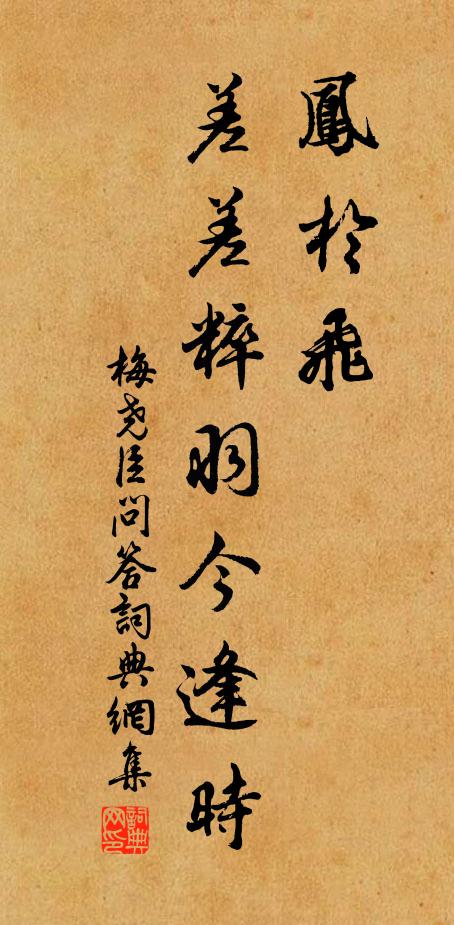 鳳於飛
差差粹羽今逢時
梅堯臣問答詞典網集
詞典网印